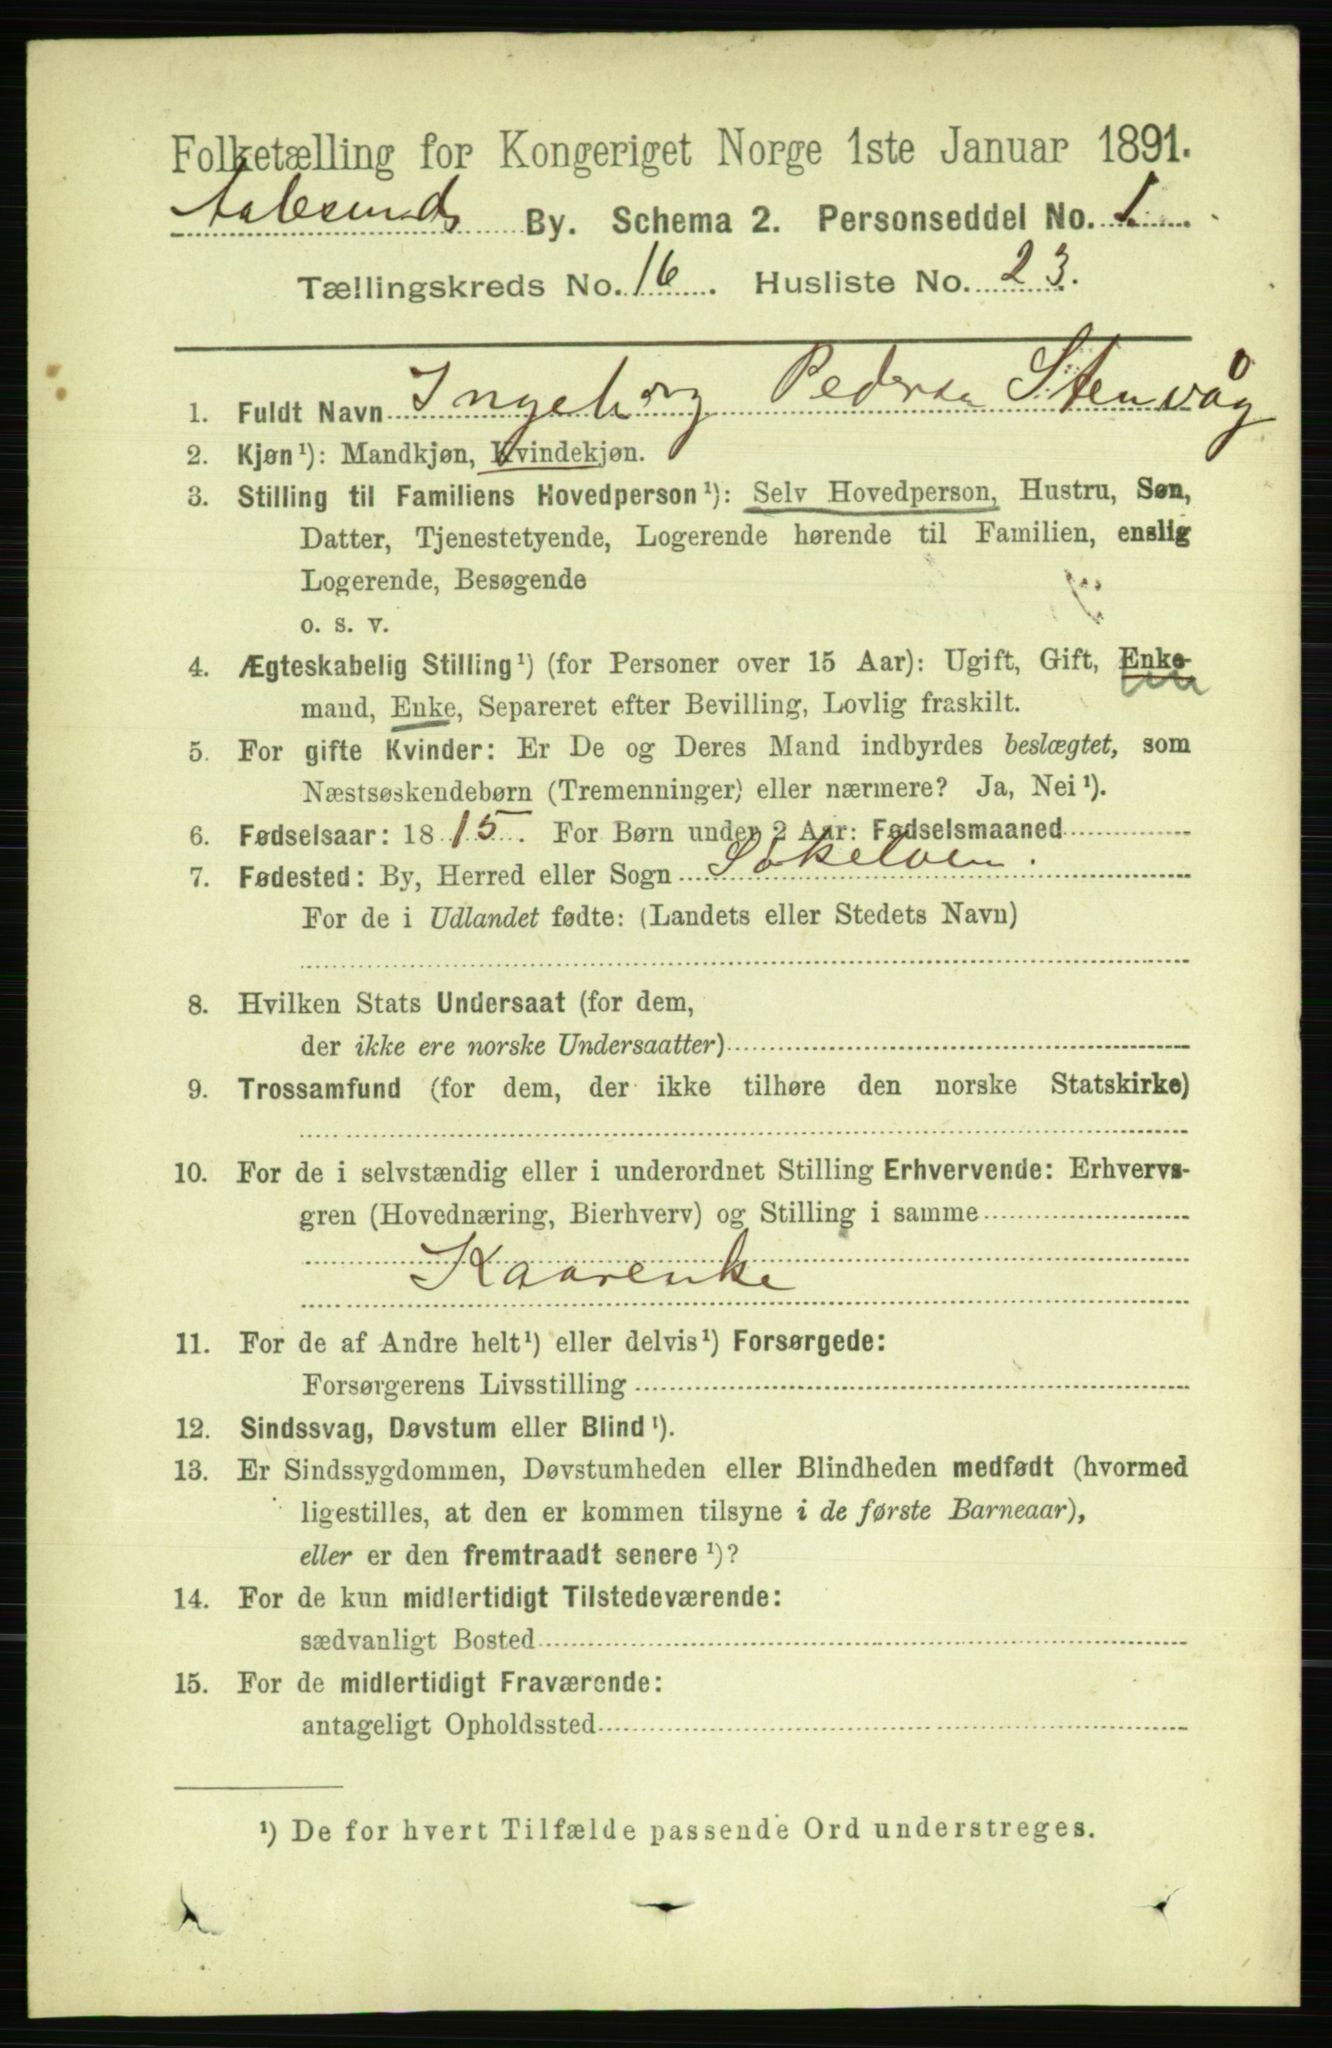 Folketælling for Kongeriget Norge 1ste Januar 1891.
Aalesunds By. Schema 2. Personseddel No. 1
Tællingskreds No. 16. Husliste No. 23.
1. Fuldt Navn Ingeborg Pedersa Stenvåg
2. Kjøn¹): Mandkjøn, Kvindekjøn.
3. Stilling til Familiens Hovedperson¹): Selv Hovedperson, Hustru, Søn,
Datter, Tjenestetyende, Logerende hørende til Familien, enslig
Logerende, Besøgende
o. s. v.
4. Ægteskabelig Stilling¹) (for Personer over 15 Aar): Ugift, Gift, Enke-
mand, Enke, Separeret efter Bevilling, Lovlig fraskilt.
5. For gifte Kvinder: Er De og Deres Mand indbyrdes beslægtet, som
Næstsøskendebørn (Tremenninger) eller nærmere? Ja, Nei¹).
6. Fødselsaar: 1815. For Børn under 2 Aar: Fødselsmaaned
7. Fødested: By, Herred eller Sogn Søkelven.
For de i Udlandet fødte: (Landets eller Stedets Navn)
8. Hvilken Stats Undersaat (for dem,
der ikke ere norske Undersaatter)
9. Trossamfund (for dem, der ikke tilhøre den norske Statskirke)
10. For de i selvstændig eller i underordnet Stilling Erhvervende: Erhvervs-
gren (Hovednæring, Bierhverv) og Stilling i samme
Kaarenke
11. For de af Andre helt¹) eller delvis¹) Forsørgede:
Forsørgerens Livsstilling
12. Sindssvag, Døvstum eller Blind¹).
13. Er Sindssygdommen, Døvstumheden eller Blindheden medfødt (hvormed
ligestilles, at den er kommen tilsyne i de første Barneaar),
eller er den fremtraadt senere¹)?
14. For de kun midlertidigt Tilstedeværende:
sædvanligt Bosted
15. For de midlertidigt Fraværende:
antageligt Opholdssted
¹) De for hvert Tilfælde passende Ord understreges.